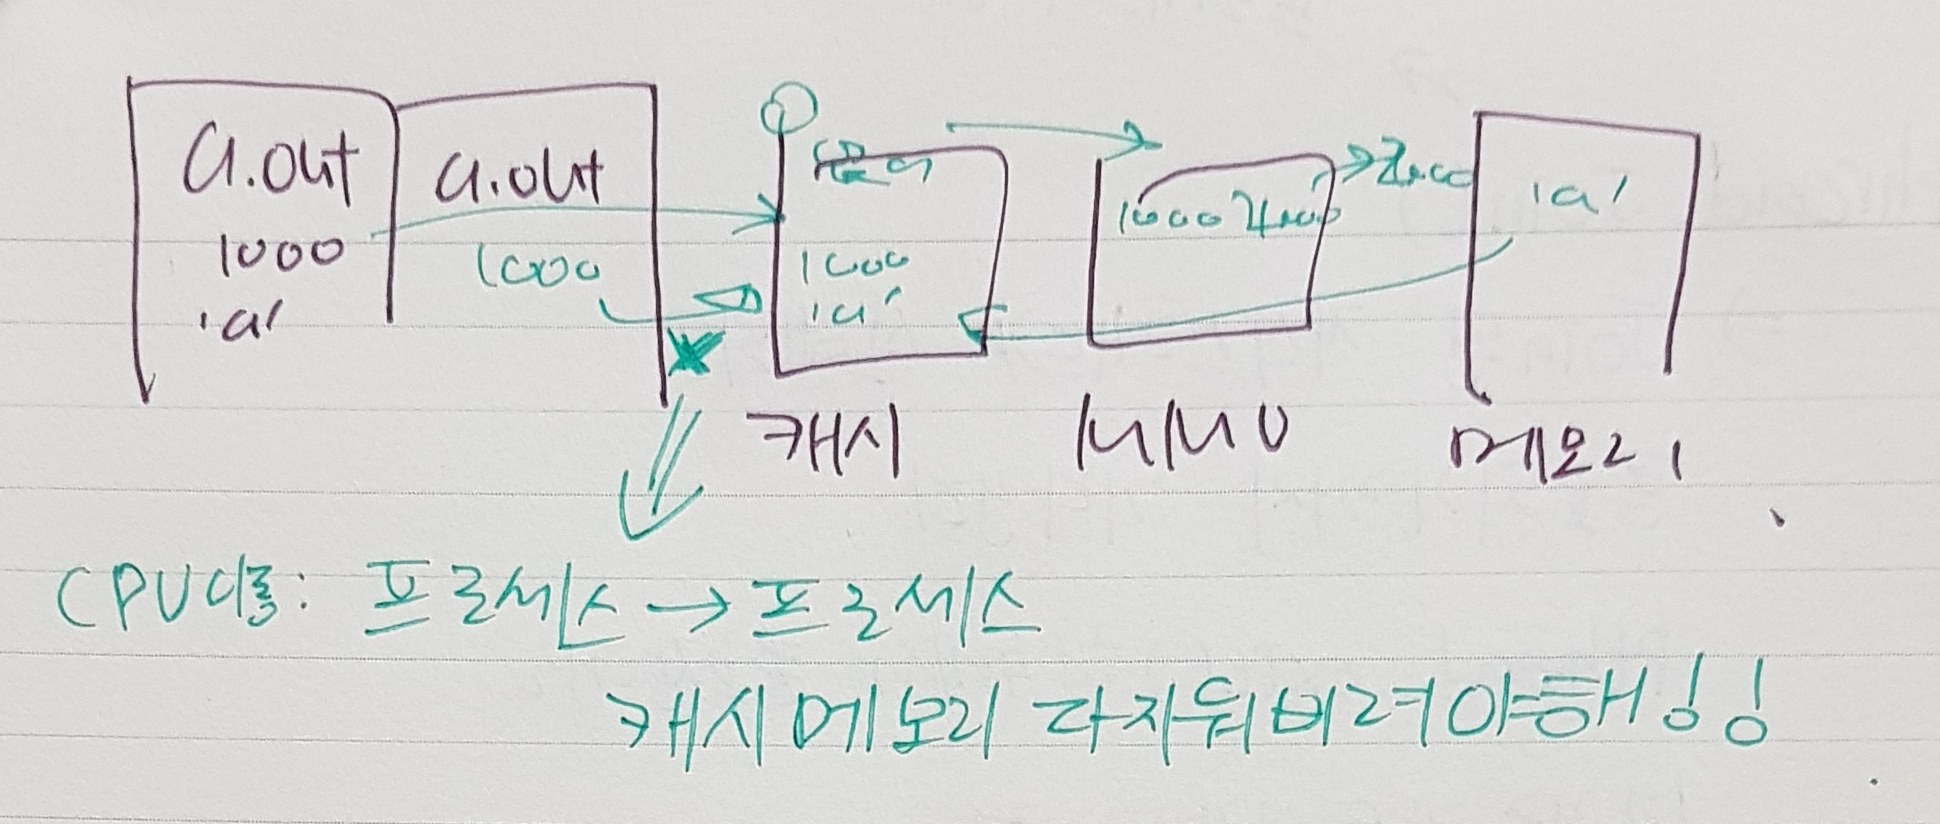 a.out a.out
1000 1000 1000 1000
'a' 'a' 'a'
캐시 MMU 메모리
CPU 이동: 프로세스 → 프로세스
캐시메모리 다지워버려야해!!